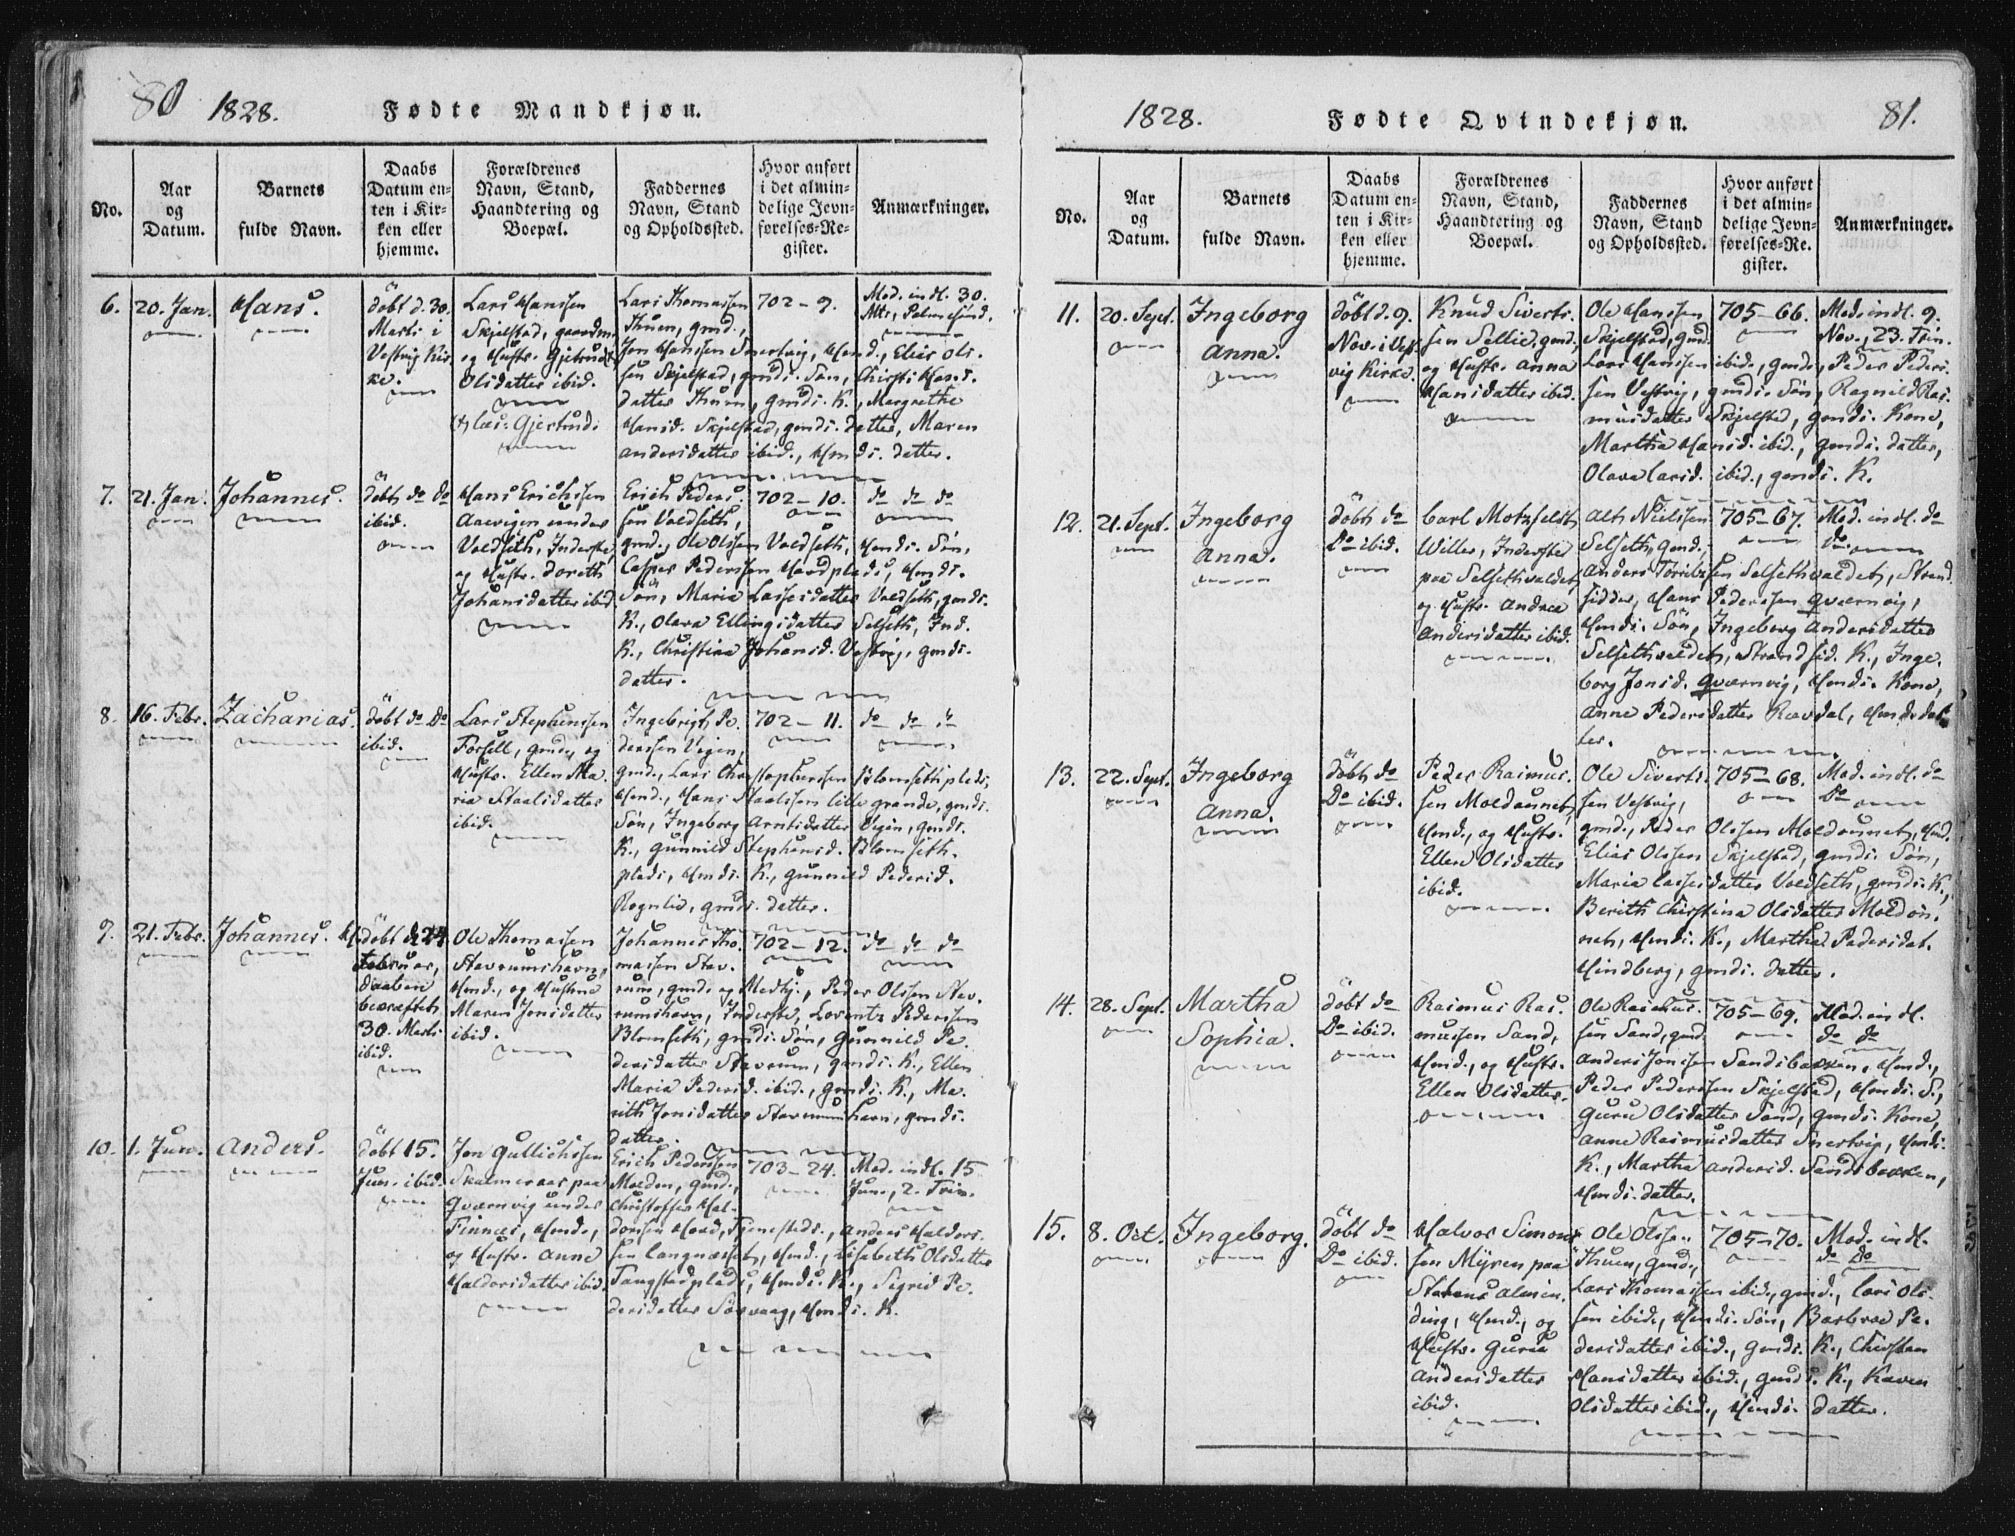 80 1828. Fødte Mandkjøn.
No.
Aar
og
Datum.
Barnets
fulde Navn.
Daabs
Datum en-
ten i Kir-
ken eller
hjemme.
Forældrenes
Navn, Stand,
Haandtering og
Boepæl.
Faddernes
Navn, Stand
og Opholdssted.
Hvor anført
i det almin-
delige Jevn-
førelses-Re-
gister.
Anmærkninger.
6. 20. Jan. Hans.
döbt d. 30.
Marts i
Vestvig Kir-
ke.
Lars Hanssen
Skjelstad, gaardm.
og Hustr. Gjetrud
Olsdatter ibid.
læs: Gjertrud.
Lars Thomassen
Thuen, gmd.,
Jon Hanssen Snertvig, Hmd., Elias Ols-
sen Skjelstad, gmds. Søn, Chirsti Hans-
datter Thuen, gmds. K., Margrethe
Hansd. Skjelstad, gmds. datter, Maren
Andersdatter ibid., Hmds. datter.
702-9.
Mod. indl. 30.
Mts., Palmesönd.
7. 21. Jan. Johannes.
döbt do do
ibid.
Hans Erichssen
Aarvigen under
Voldseth, Inderste,
og Hustr. Doreth
Johansdatter ibid
Erich Peders-
sen Voldseth,
gmd., Ole Olssen Voldseth, Hmds. Søn,
Casper Pederssen Hordplads, Hmds.
Søn, Maria Lassesdatter Voldseth, gmds.
K., Olava Ellingsdatter Selseth, Ind.
K., Christina Johansd. Vestvig, gmds.
datter.
702-10.
do do do
8. 16. Febr. Zacharias.
döbt do do
ibid.
Lars Stephenssen
Farsell, gmd., og
Hustr. Ellen Ma-
ria Staalsdatter
ibid.
Ingebrigt Pe-
derssen Vigen,
gmd., Lars Christophersen Blomsethplads,
Hmd., Hans Staalssen lille grande, gmds.
Søn, Ingeborg Arntsdatter Vigen, gmds.
K., Gunnild Stephensd. Blomseth-
plads, Hmds. K., Gunnild Pedersd.
Rognlid, gmds. datter.
702-11.
do do do
9. 21. Febr. Johannes.
H. döbt d. 24
Februar,
daaben
bekræftet
30. Marts
ibid.
Ole Thomassen
Stavrumshavn,
Hmd., og Hustrue
Maren Jonsdatter
ibid.
Johannes Tho-
massen Stav-
rum, gmd. og Medhj., Peder Olssen Stav-
rumshavn, Inderste, Lorentz Pederssen
Blomseth, gmds. Søn, Gunnild Pe-
dersdatter Stavrum, gmds. K., Ellen
Maria Pedersd. ibid., gmds. K., Ma-
rith Jonsdatter Stavrumshavn, gmds.
datter.
702-12.
do do do
10. 1. Jun. Anders.
döbt 15.
Jun. ibid.
Jon Gullichssen
Skalmeraas paa
Qværnvig under
Finnes, Hmd.,
og Hustr. Anne
Haldorsdatter ibid.
Erich Pederssen
Molden, gmd.,
Christoffer Hal-
dorssen Hord, Tjenesteds., Anders Haldors-
sen Langnæsset, Hmd., Lisabeth Olsdatter
Tangstadplads, Hmds. K., Sigrid Pe-
dersdatter Sørvaag, Hmds. K.
703-24.
Mod. indl. 15
Jun., 2. Trin.
1828. Fødte Qvindekjøn. 81.
No.
Aar
og
Datum.
Barnets
fulde Navn.
Daabs
Datum en-
ten i Kir-
ken eller
hjemme.
Forældrenes
Navn, Stand,
Haandtering og
Boepæl.
Faddernes
Navn, Stand
og Opholdssted.
Hvor anført
i det almin-
delige Jevn-
førelses-Re-
gister.
Anmærkninger.
11. 20. Sept. Ingeborg
Anna.
döbt d. 9.
Nov. i Vest-
vig Kirke.
Knud Siverts-
sen Sellie, gmd.,
og Hustr. Anna
Hansdatter ibid.
Ole Hanssen
Skjelstad, gmd.
Lars Hanssen ibid., gmd., Peder Peders-
sen Vestvig, gmds. Søn, Ragnild Ras-
musdatter Skjelstad, gmds. Kone,
Martha Hansd. ibid., gmds. datter,
Olava Larsd. ibid., gmds. K.
705-66.
Mod. indl. 9.
Nov., 23. Trin.
12. 21. Sept. Ingeborg
Anna.
döbt do
Do ibid.
Carl Motzfeldt
Willer, Inderste
paa Selsethvaldet,
og Hustr. Andrea
Andersdatter ibid.
Alt Nielssen
Selseth, gmd.,
Anders Toritzsen Selsethvaldet, Strand-
sidder, Hans Pederssen Qværnvig,
Hmds. Søn, Ingeborg Andersdatter
Selsethvaldet, Strandsid. K., Inge-
borg Jonsd. Qværnvig, Hmds. Kone,
Anne Pedersdatter Ravdal, Hmds. dat-
ter.
705-67.
Mod. indl. do
Do
13. 22. Sept. Ingeborg
Anna.
döbt do
Do ibid.
Peder Rasmus-
sen Moldounet,
Hmd., og Hustr.
Ellen Olsdatter
ibid.
Ole Siverts-
sen Vestvig,
gmd., Peder Olssen Moldounet, Hmd.
Elias Olssen Skjelstad, gmds. Søn,
Maria Lassesdatter Voldseth, gmds. K.,
Berith Christina Olsdatter Moldou-
net, Hmds. K., Martha Pedersdat.
Hindberg, gmds. datter.
705-68.
Mod. indl. do
Do
14. 28. Sept. Martha
Sophia.
döbt do
Do ibid.
Rasmus Ras-
mussen Sand,
Hmd., og Hustr.
Ellen Olsdatter.
Ole Rasmus-
sen Sand, gmd.
Anders Jonssen Sandsbakken, Hmd.,
Peder Pederssen Skjelstad, Hmds. S.,
Guru Olsdatter Sand, gmds. Kone,
Anne Rasmusdatter Snertvig, Hmds.
K., Martha Andersd. Sandsbakken,
Hmds. datter.
705-69.
Mod. indl.
do do
15. 8. Oct. Ingeborg.
döbt do
Do ibid.
Halvor Simons-
sen Myren paa
Statens Almin-
ding, Hmd., og
Hustr. Guria
Andersdatter
ibid.
Ole Olssen
Thuen, gmd.,
Lars Thomassen ibid., gmd., Lars Ols-
sen ibid., Hmds. Søn, Barbroe Pe-
dersdatter ibid., gmds. K., Chirsten
Hansdatter ibid., gmds. K., Karen
Olsdatter ibid., Hmds. datter.
705-70.
Mod. indl.
do Do